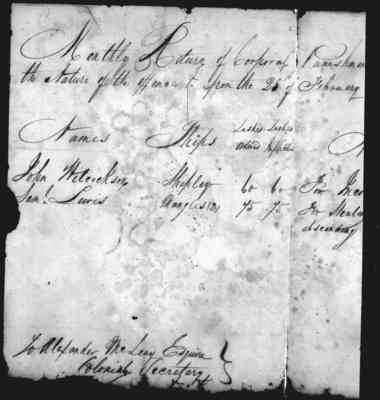 Monthly Return of Corporal Punishmen
the Nature of the offence upon the 28th of February
Names Ships Lashes Lashes
Ordered Inflicted
John Wilcockson Shipley 60 60 For
Saml. Lewis 75 75 For Stealin
absconding
To Alexander McLeay Esquire
Colonial Secretary